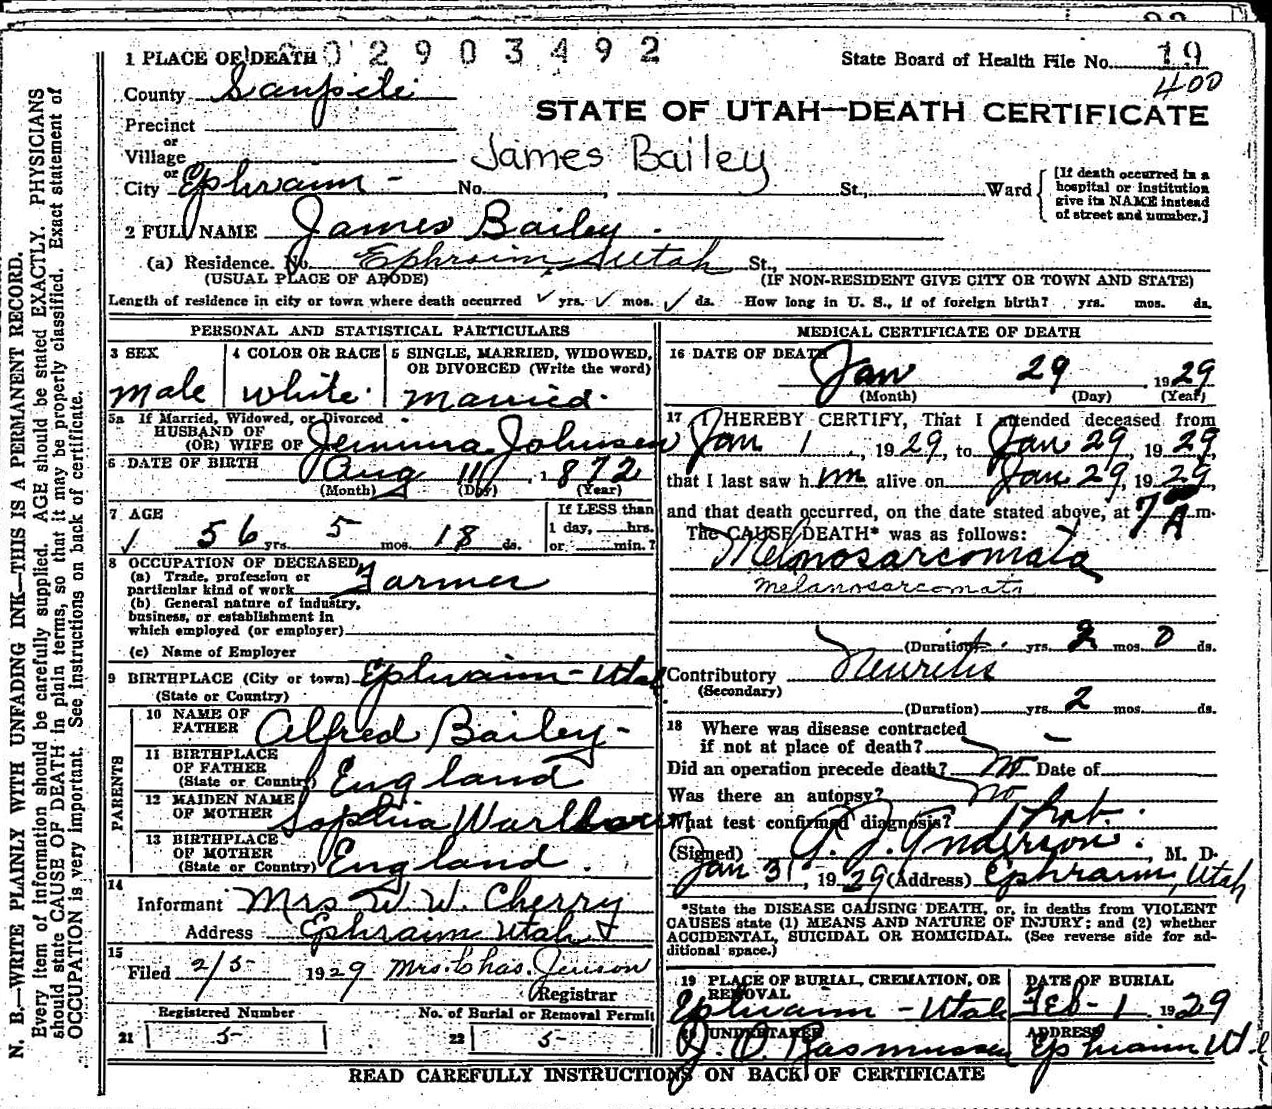 02903492
1 PLACE OF DEATH
State Board of Health File No. 19
400
County Sanpete
STATE OF UTAH—DEATH CERTIFICATE
Precinct
or
Village
James Bailey
or
City Ephraim - No. , St., Ward
[If death occurred in a hospital or institution give its NAME instead of street and number.]
2 FULL NAME James Bailey.
(a) Residence. No. Ephraim, Utah St.,
(USUAL PLACE OF ABODE) (IF NON-RESIDENT GIVE CITY OR TOWN AND STATE)
Length of residence in city or town where death occurred ✓ yrs. ✓ mos. ✓ ds. How long in U. S., if of foreign birth? yrs. mos. ds.
PERSONAL AND STATISTICAL PARTICULARS
3 SEX
Male
4 COLOR OR RACE
White.
5 SINGLE, MARRIED, WIDOWED, OR DIVORCED (Write the word)
Married.
5a If Married, Widowed, or Divorced
HUSBAND OF
(OR) WIFE OF Jemima Johnsen
6 DATE OF BIRTH Aug 11, 1872
(Month) (Day) (Year)
7 AGE
56 yrs. 5 mos. 18 ds.
If LESS than
1 day, hrs.
or min.?
8 OCCUPATION OF DECEASED
(a) Trade, profession or
particular kind of work Farmer
(b) General nature of industry,
business, or establishment in
which employed (or employer)
(c) Name of Employer
9 BIRTHPLACE (City or town) Ephraim - Utah
(State or Country)
PARENTS
10 NAME OF
FATHER Alfred Bailey -
11 BIRTHPLACE
OF FATHER
(State or Country) England
12 MAIDEN NAME
OF MOTHER Sophia
13 BIRTHPLACE
OF MOTHER
(State or Country) England.
14
Informant Mrs W. W. Cherry
Address Ephraim Utah
15
Filed 2/5 1929 Mrs. Chas. Jenson
Registrar
Registered Number
21 5-
No. of Burial or Removal Permit
22 5-
MEDICAL CERTIFICATE OF DEATH
16 DATE OF DEATH
Jan 29, 1929
(Month) (Day) (Year)
17 I HEREBY CERTIFY, That I attended deceased from
Jan 1, 1929, to Jan 29, 1929,
that I last saw h im alive on Jan 29, 1929,
and that death occurred, on the date stated above, at 7 A m.
The CAUSE DEATH* was as follows:
Melnosarcomata
melanosarcomati
(Duration) yrs. 2 mos. 0 ds.
Contributory Neuritis
(Secondary)
(Duration) yrs. 2 mos. ds.
18 Where was disease contracted
if not at place of death? -
Did an operation precede death? no Date of
Was there an autopsy? No
What test confirmed diagnosis?
(Signed) A. J. Anderson. M. D.
Jan 31, 1929 (Address) Ephraim, Utah
*State the DISEASE CAUSING DEATH, or, in deaths from VIOLENT
CAUSES state (1) MEANS AND NATURE OF INJURY; and (2) whether
ACCIDENTAL, SUICIDAL OR HOMICIDAL. (See reverse side for ad-
ditional space.)
19 PLACE OF BURIAL, CREMATION, OR
REMOVAL
Ephraim - Utah
DATE OF BURIAL
Feb - 1 1929
20 UNDERTAKER
J. O. Rasmussen
ADDRESS
Ephraim Ut.
READ CAREFULLY INSTRUCTIONS ON BACK OF CERTIFICATE
N. B.—WRITE PLAINLY WITH UNFADING INK—THIS IS A PERMANENT RECORD.
Every item of information should be carefully supplied. AGE should be stated EXACTLY. PHYSICIANS
should state CAUSE OF DEATH in plain terms, so that it may be properly classified. Exact statement of
OCCUPATION is very important. See instructions on back of certificate.